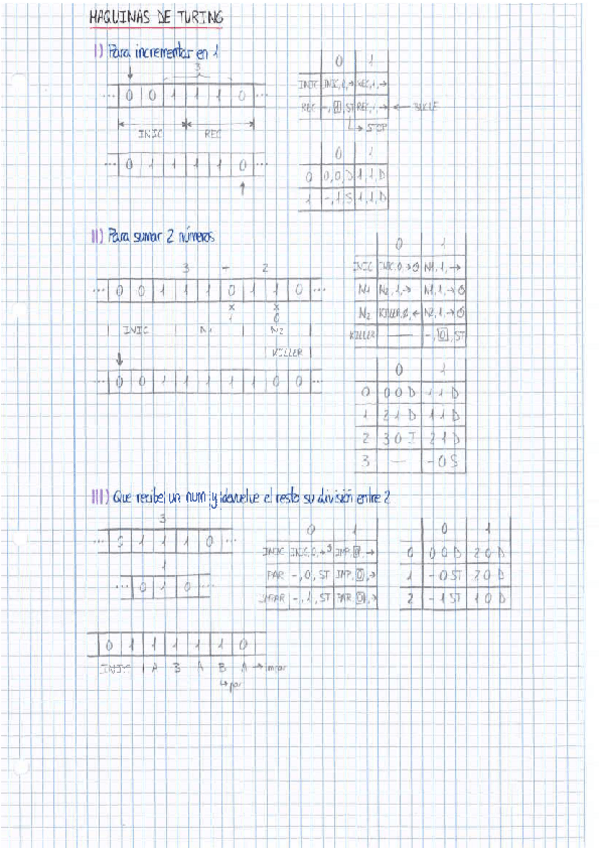 MAQUINAS DE TURING
I) Para incrementar en 1
3
0 1
... 0 0 1 1 1 0 ...
INIC INIC, 1, → REC, 1, →
REC -, 1, ST REC, 1, → ← BUCLE
INIC REC
→ STOP
... 0 1 1 1 1 0 ...
0 1
0 0,0,D 1,1,D
1 -,1,S 1,1,D
II) Para sumar 2 números
3 + 2
... 0 0 1 1 1 0 1 1 0 ...
x x
1 0
INIC N1 N2
KILLER
... 0 0 1 1 1 1 1 0 0 ...
0 1
INIC INIC, 0, → N1, 1, →
N1 N2, 1, → N1, 1, →
N2 KILLER, 0, ← N2, 1, →
KILLER — -, 0, ST
0 1
0 0 0 D 1 1 D
1 2 1 D 1 1 D
2 3 0 I 2 1 D
3 — - 0 S
III) Que recibe un num y devuelve el resto su división entre 2
3
... 0 1 1 1 0 ...
1
... 0 1 0 ...
0 1
INIC INIC, 0, → IMP, 0, →
PAR -, 0, ST IMP, 0, →
IMPAR -, 1, ST PAR, 0, →
0 1
0 0 0 D 2 0 D
1 - 0 ST 2 0 D
2 - 1 ST 1 0 D
0 1 1 1 1 1 0
INIC A B A B A → impar
↳ par